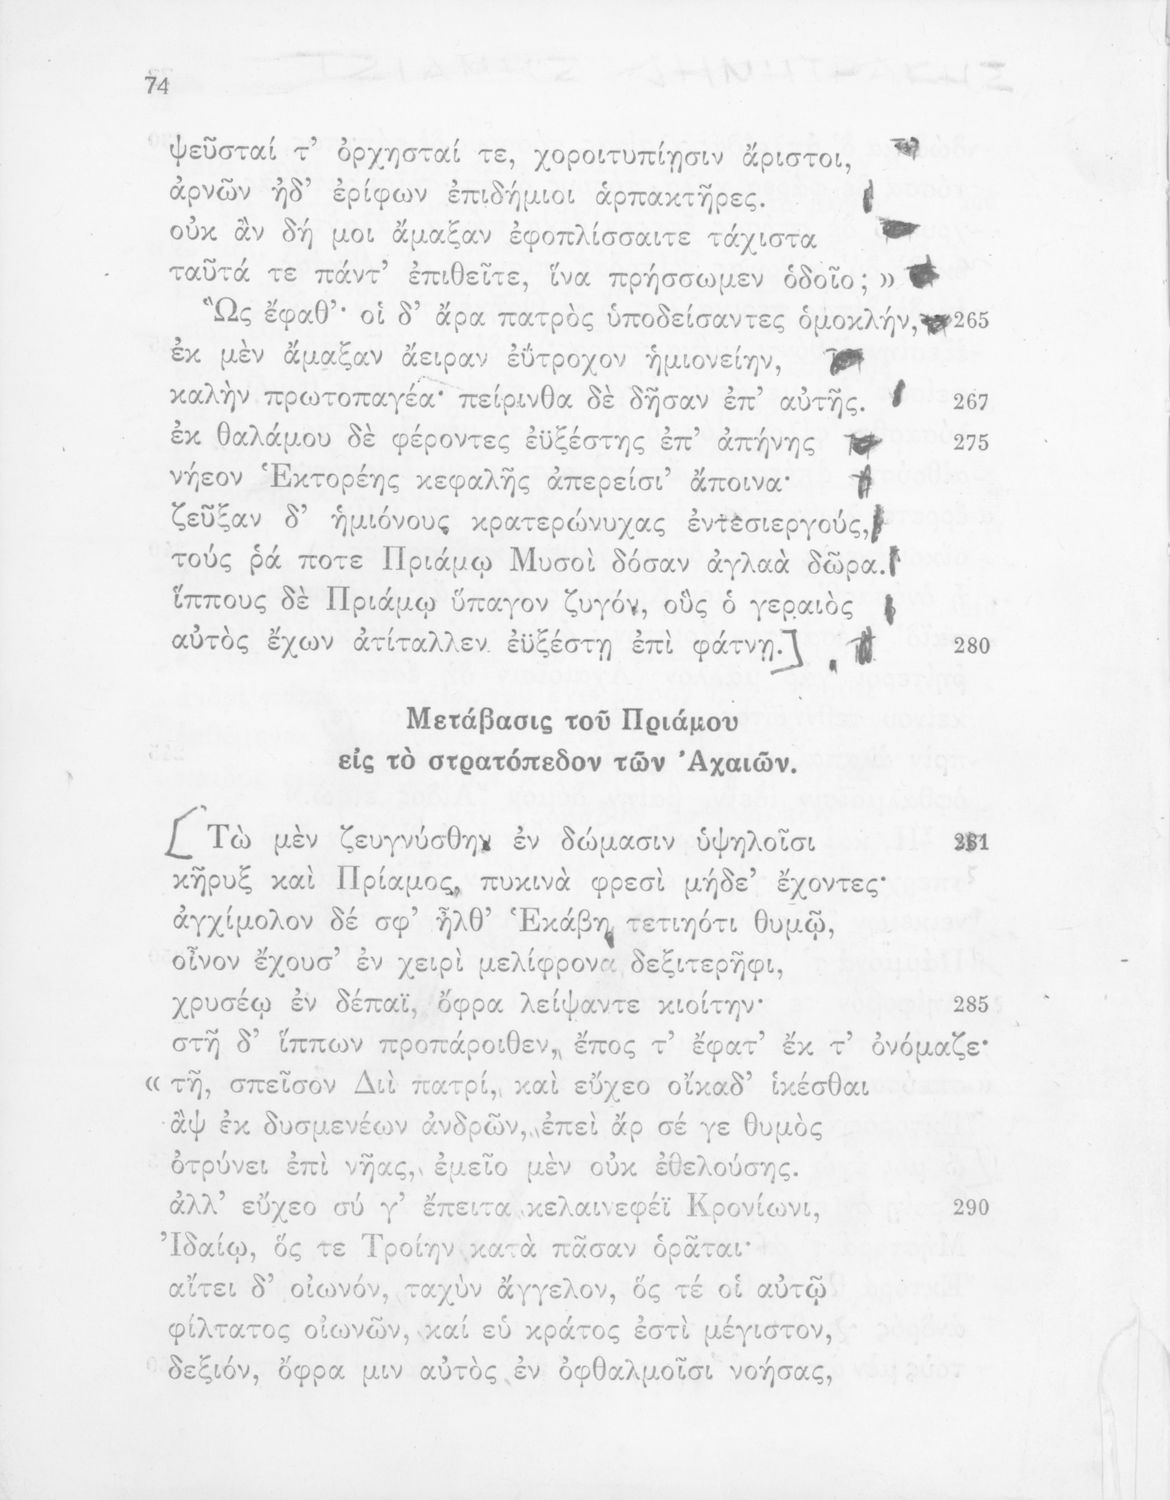 74
ψεῦσταί τ’ ὀρχησταί τε, χοροιτυπίῃσιν ἄριστοι,
ἀρνῶν ἠδ’ ἐρίφων ἐπιδήμιοι ἁρπακτῆρες.
οὐκ ἂν δή μοι ἅμαξαν ἐφοπλίσσαιτε τάχιστα
ταῦτά τε πάντ’ ἐπιθεῖτε, ἵνα πρήσσωμεν ὁδοῖο; »
Ὣς ἔφαθ’· οἱ δ’ ἄρα πατρὸς ὑποδείσαντες ὁμοκλήν, 265
ἐκ μὲν ἅμαξαν ἄειραν ἐΰτροχον ἡμιονείην,
καλὴν πρωτοπαγέα· πείρινθα δὲ δῆσαν ἐπ’ αὐτῆς. 267
ἐκ θαλάμου δὲ φέροντες ἐϋξέστης ἐπ’ ἀπήνης 275
νήεον Ἑκτορέης κεφαλῆς ἀπερείσι’ ἄποινα·
ζεῦξαν δ’ ἡμιόνους κρατερώνυχας ἐντεσιεργούς,
τούς ῥά ποτε Πριάμῳ Μυσοὶ δόσαν ἀγλαὰ δῶρα.
ἵππους δὲ Πριάμῳ ὕπαγον ζυγόν, οὓς ὁ γεραιὸς
αὐτὸς ἔχων ἀτίταλλεν ἐϋξέστῃ ἐπὶ φάτνῃ.] 280
Μετάβασις τοῦ Πριάμου
εἰς τὸ στρατόπεδον τῶν Ἀχαιῶν.
[Τὼ μὲν ζευγνύσθην ἐν δώμασιν ὑψηλοῖσι 281
κῆρυξ καὶ Πρίαμος, πυκινὰ φρεσὶ μήδε’ ἔχοντες·
ἀγχίμολον δέ σφ’ ἦλθ’ Ἑκάβη τετιηότι θυμῷ,
οἶνον ἔχουσ’ ἐν χειρὶ μελίφρονα δεξιτερῆφι,
χρυσέῳ ἐν δέπαϊ, ὄφρα λείψαντε κιοίτην· 285
στῆ δ’ ἵππων προπάροιθεν, ἔπος τ’ ἔφατ’ ἔκ τ’ ὀνόμαζε·
« τῆ, σπεῖσον Διὶ πατρί, καὶ εὔχεο οἴκαδ’ ἱκέσθαι
ἂψ ἐκ δυσμενέων ἀνδρῶν, ἐπεὶ ἄρ σέ γε θυμὸς
ὀτρύνει ἐπὶ νῆας, ἐμεῖο μὲν οὐκ ἐθελούσης.
ἀλλ’ εὔχεο σύ γ’ ἔπειτα κελαινεφέϊ Κρονίωνι, 290
Ἰδαίῳ, ὅς τε Τροίην κατὰ πᾶσαν ὁρᾶται·
αἴτει δ’ οἰωνόν, ταχὺν ἄγγελον, ὅς τέ οἱ αὐτῷ
φίλτατος οἰωνῶν, καί εὑ κράτος ἐστὶ μέγιστον,
δεξιόν, ὄφρα μιν αὐτὸς ἐν ὀφθαλμοῖσι νοήσας,